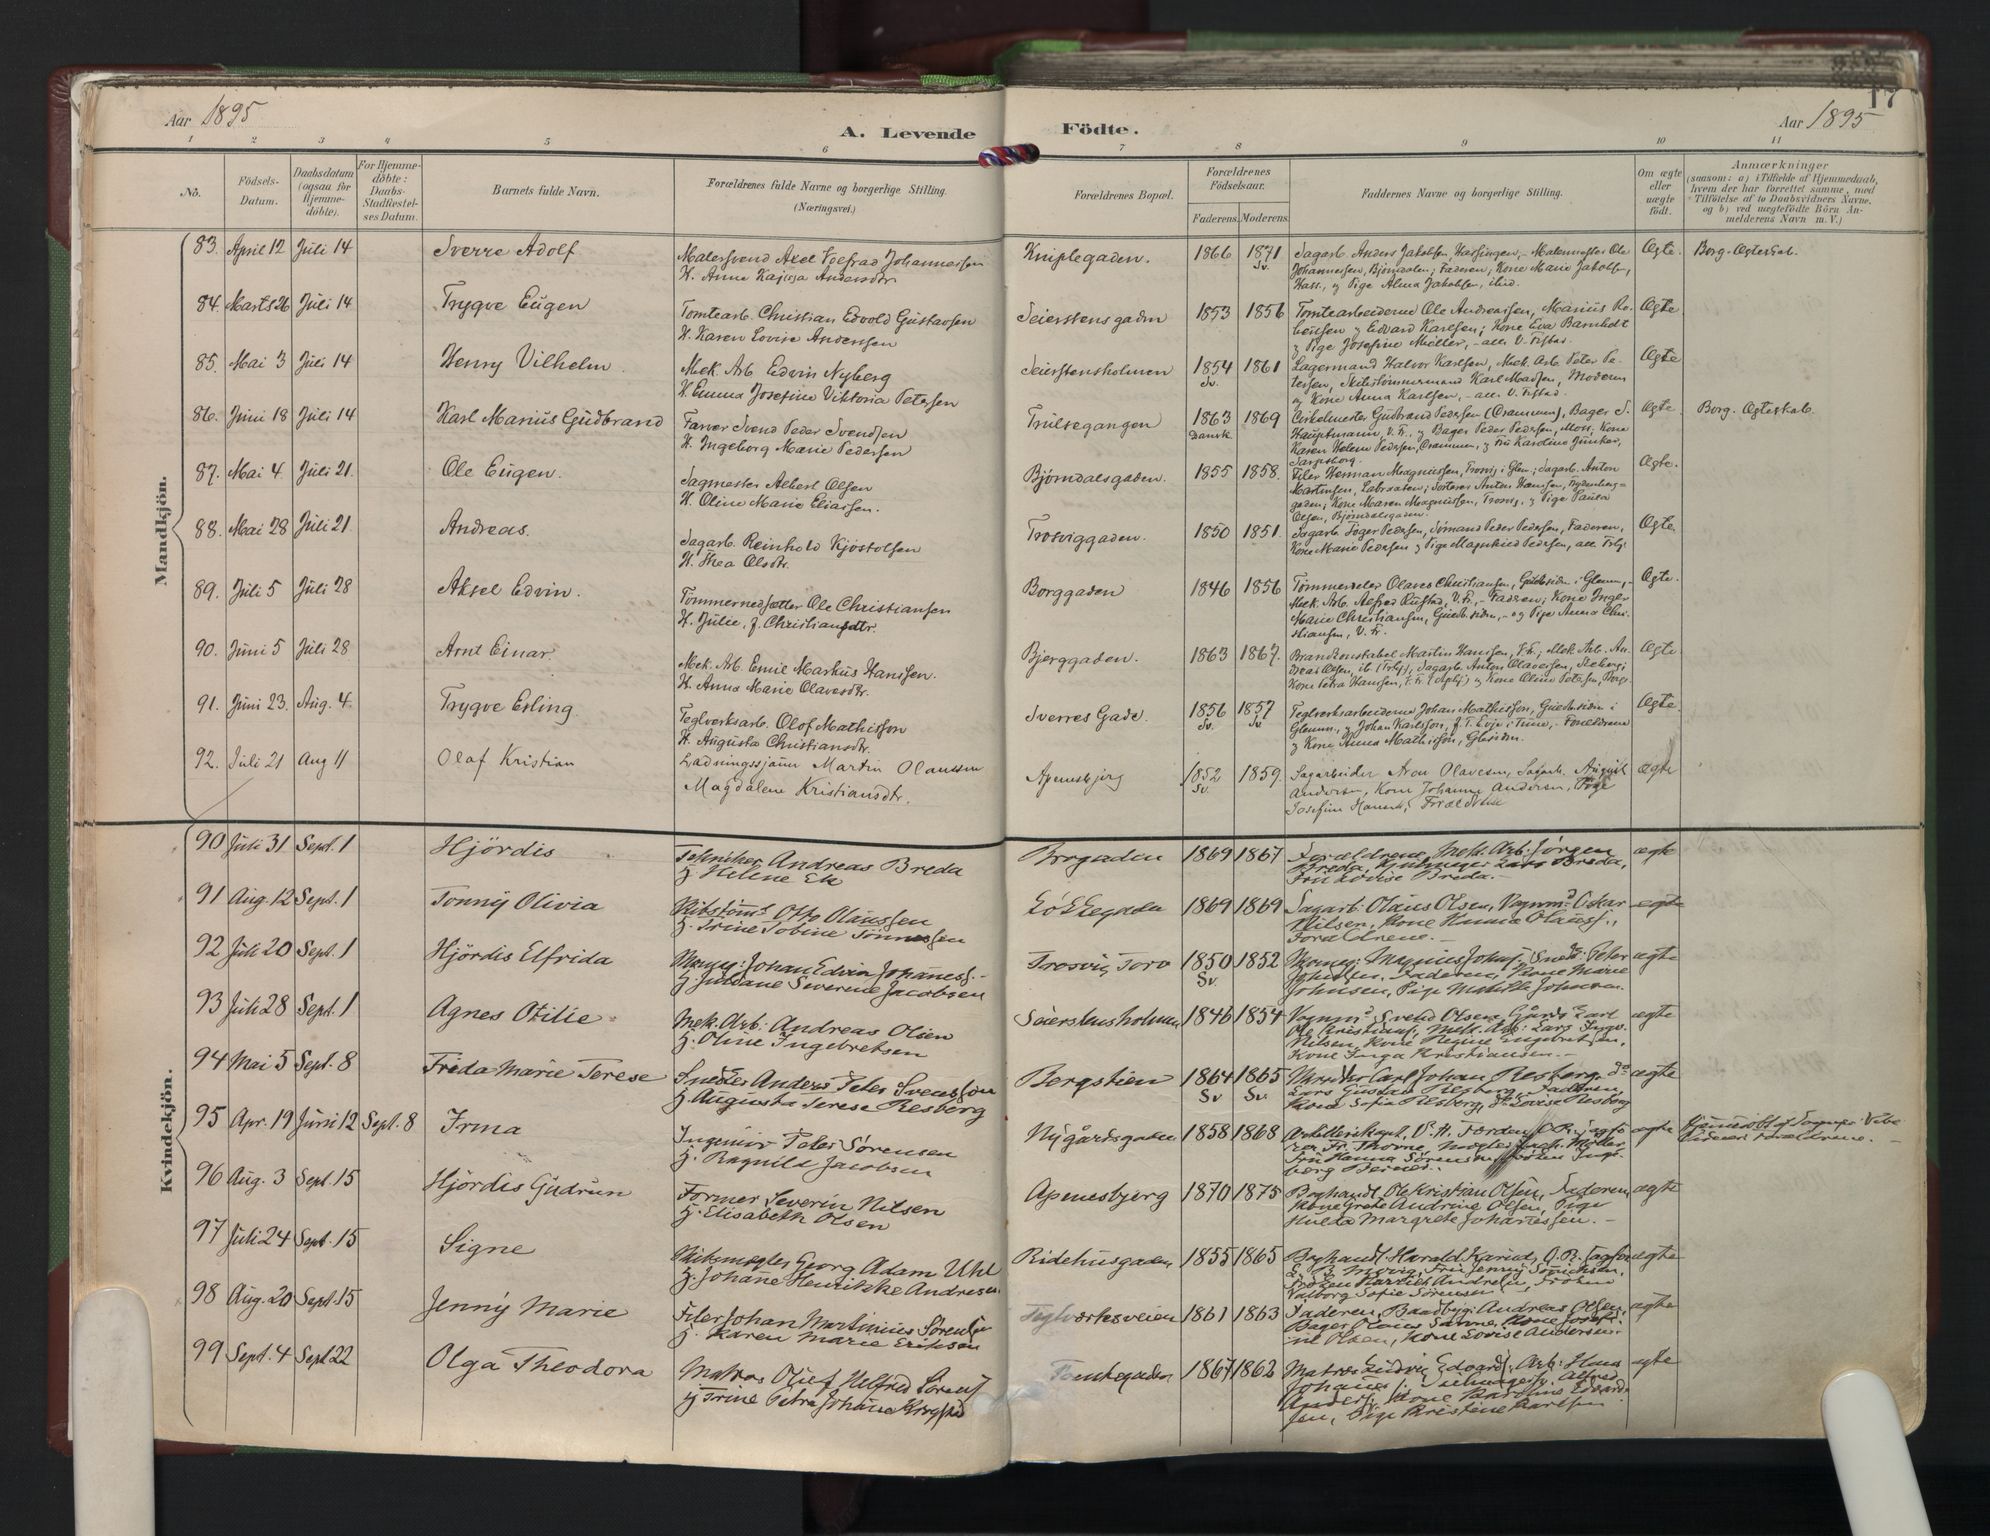 Aar 1895
A. Levende Födte.
17
Aar 1895
1 2 3 4 5 6 7 8 9 10 11
No.
Födsels-Datum.
Daabsdatum (ogsaa for Hjemme-döbte).
For Hjemme-döbte: Daabs-Stadfæstel-ses Datum.
Barnets fulde Navn.
Forældrenes fulde Navne og borgerlige Stilling.
(Næringsvei.)
Forældrenes Bopæl.
Forældrenes Födselsaar.
Faderens. Moderens.
Faddernes Navne og borgerlige Stilling.
Om ægte eller uægte födt.
Anmærkninger
(saasom: a) i Tilfælde af Hjemmedaab,
hvem der har forrettet samme, med
Tilföielse af to Daabsvidners Navne,
og b) ved uægtefödte Börn An-
melderens Navn m. V.)
Mandkjön.
83. April 12 Juli 14 Sverre Adolf
Malersvend Axel Johannessen
H. Anne Kajssa Andersdtr
Kniplegaden. 1866 1871 Sv.
Sagarb. Anders Jakobsen, Malermester Ole
Johannessen, Bjørndalen; Faderen; Kone Marie Jakobsen,
Pige Alma Jakobsen, ibid.
Ægte. Borg. Ægteskab.
84. Marts 26 Juli 14 Trygve Eugen
Tomtearb. Christian Edvold Gustavsen
H. Karen Lovise Anderssen
Seierstensgaden 1853 1856
Tomtearbeiderne Ole Andreassen, Marius Ro-
bertsen og Edvard Karlsen; Kone Eva Barnholdt
og Pige Josefine Møller, - alle V. Fr.stad.
Ægte.
85. Mai 3 Juli 14 Henry Vilhelm
Mek. Arb. Edvin Nyberg
H. Emma Josefine Viktoria Petersen
Seierstensholmen 1854 Sv. 1861
Lagermand Halvor Karlsen, Mek. Arb. Peter Pe-
tersen, Skibstømmermand Karl Madsen, Moderen
og Kone Anna Karlsen, - alle V. Fr.stad.
Ægte
86. Juni 18 Juli 14 Karl Marius Gudbrand
Farver Svend Peder Svendsen
H. Ingeborg Marie Pedersen
Truilsegangen 1863 Dansk 1869
Cirkelmester Gudbrand Pedersen (Drammen), Bager S.
Hauptmann, V. Fr., og Bager Peder Pedersen, Moss; Kone
Karen Helene Pedersen, Drammen, og Fru Karoline Junker,
Sarpsborg.
Ægte Borg. Ægteskab
87. Mai 4. Juli 21. Ole Eugen.
Sagmester Albert Olsen
H. Oline Marie Eliassen.
Bjørndalsgaden. 1855 1858.
Filer Herman Magnussen, Trosvig i Glem.; Sagarb. Anton
Martinsen, Labraaten; Sorterer Anton Hansen,
gaden; Kone Maren Magnussen, Trosvig, og Pige Paula
Olsen, Bjørndalsgaden.
Ægte.
88. Mai 28 Juli 21 Andreas.
Sagarb. Reinhold Kjøstolsen
H. Thea Olsdtr.
Trosviggaden. 1850 1851
Sagarb. Pedersen, Sømand Peder Pedersen, Faderen,
Kone Marie Pedersen og Pige Pedersen, alle
Ægte.
89. Juli 5 Juli 28 Aksel Edvin.
Tømmernedsætter Ole Christiansen
H. Julie, f. Christiansdtr.
Borggaden 1846 1856
Olaves Christiansen, Gudesiden i Glem., -
Mek. Arb. Alfred Rustad, V. Fr., - Faderen; Kone Inger
Marie Christiansen, - og Pige Anna Chri-
stiansen, V. Fr.
Ægte.
90. Juni 5 Juli 28 Arnt Einar.
Mek. Arb. Emil Markus Hanssen.
H. Anna Marie Olavesdtr.
Bjerggaden. 1863 1867.
Brandkonstabel Martin Hanssen, Mek. Arb. An-
dreas Olsen, Sagarb. Anton Olavessen,
Kone Petra Hansen, og Kone Oline Petersen, Borge
Ægte.
91. Juni 23. Aug. 4. Trygve Erling.
Teglverksarb. Olof Mathisson
H. Augusta Christiansdtr.
Sverres Gade. 1856 Sv. 1857 Sv
Teglverksarbeiderne Johan Mathisson, i
Glemm., og Johan Karlsson, i Tune, - Forældrene
og Kone Anna Mathisson,
Ægte.
92. Juli 21 Aug 11 Olaf Kristian
Ladningssjauer Martin Olaussen
Magdalene Kristiansdtr.
Apenesbjerg 1852 Sv. 1859.
Sagarbeider Aron Olavesen, Sagarb. August
Andersen, Kone Johanne Andersen, Pige
Josefine Hansen; Forældrene
ægte
Kvindekjön.
90 Juli 31 Sept. 1 Hjördis
Tekniker Andreas Breda
H. Helene Ek
Borgaden 1869 1867
Forældrene, Mek. Arb. Jørgen
Breda, Lars Breda,
Fru Lovise Breda. -
ægte
91 Aug. 12 Sept. 1 Tonny Olivia
Skibstømd. Otto Olaussen
H. Trine Tobine Tønnessen
Løkkegaden 1869 1869
Sagarb. Olaus Olsen, Vognmd. Oskar
Nilsen, Kone Olauss.,
Forældrene. -
ægte
92 Juli 20 Sept. 1 Hjördis Elfrida
Johan Edvin Johaness. -
H. Juldane Severine Jacobsen
Trosvig Torv 1850 Sv. 1852
Magnus Johns., Peter
Johnsen, Faderen, Kone Marie
Johnsen, Pige Matilde Johnsen.
ægte
93 Juli 28 Sept. 1 Agnes Otilie
Mek. Arb: Andreas Olsen
H. Oline Ingebretsen
Seierstensholmen 1846 1854
Vognmd. Svend Olsen, Carl
Ole Kristians., Mek. Arb: Lars Ingv.
Nilsen, Kone Regine Ingebretsen,
Kone Inga Kristiansen. -
ægte
94 Mai 5 Sept. 8 Frida Marie Terese
Snedker Anders Peter Svensson
H. Augusta Terese Resberg
Bergstien 1864 Sv 1865 Sv.
Carl Johan Resberg, do
Lars Gustav Resberg, Faderen,
Kone Sofia Resberg, do Lovise Resberg
ægte
95 Apr. 19 Juni 12 Sept. 8 Irma
Ingeniør Peter Sørensen
H. Ragnild Jacobsen
Nygårdsgaden 1858 1868
Fru Hanna Sørensen, Frøken Inge-
borg
ægte
Forældrene. -
96 Aug. 3 Sept. 15 Hjördis Gudrun
Former Severin Nilsen
H. Elisabeth Olsen
Apenesbjerg 1870 1875
Boghandl. Ole Kristian Olsen, Faderen,
Kone Grete Andrine Olsen, Pige
Hulda Margrete Johannessen. -
ægte
97 Juli 24 Sept. 15 Signe
Skibsmægler Georg Adam Uhl
H. Johane Henrikke Andresen
Ridehusgaden 1855 1865
Boghandl. Harald
Fru Jenny
Frøken Andresen, Frøken
Valborg Sofie Sørensen
ægte
98 Aug. 20 Sept. 15 Jenny Marie
Filer Johan Martinius Sørensen
H. Karen Marie Eriksen
Teglværksveien 1861 1863
Faderen, Baadbyg: Andreas Olsen,
Bager Olaus Sanne, Kone Josefi-
ne Olsen, Kone Lovise Andersen.
ægte
99 Sept. 4 Sept 22 Olga Theodora
Matros Oluf Helfred Sørens.
H. Trine Petra Johane
Tomtegaden 1867 1862
Matros Ludvig Edvards., Arb: Hans
Johans., Alfred
Anders., Kone Karoline Edvard-
sen, Pige Kristine Karlsen
ægte